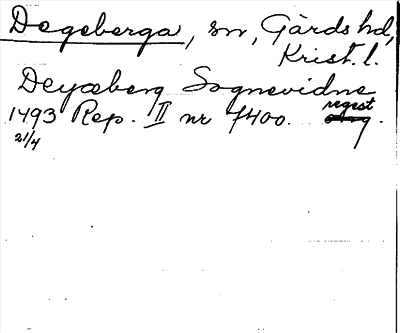 Degeberga, sn, Gärds hd,
Krist. l.
Deyæberg Sognevidne
regest
1493 Rep. II nr 7400.
21/4